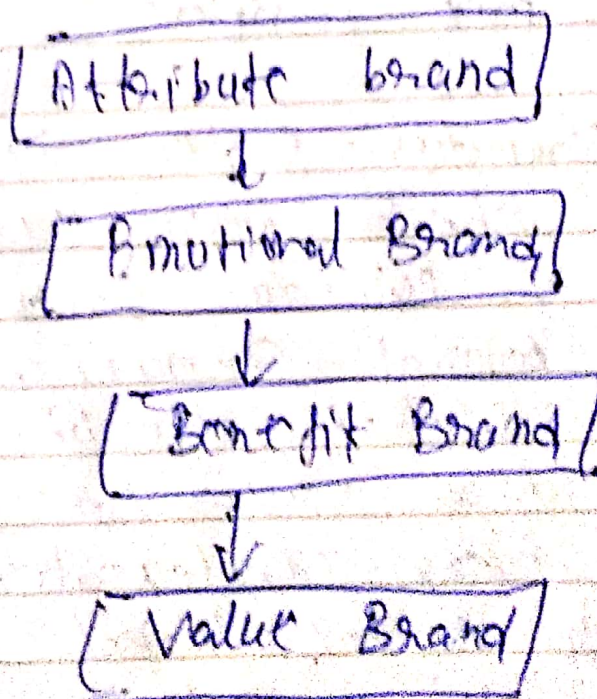 Attribute brand
Emotional Brand
Benefit Brand
Value Brand